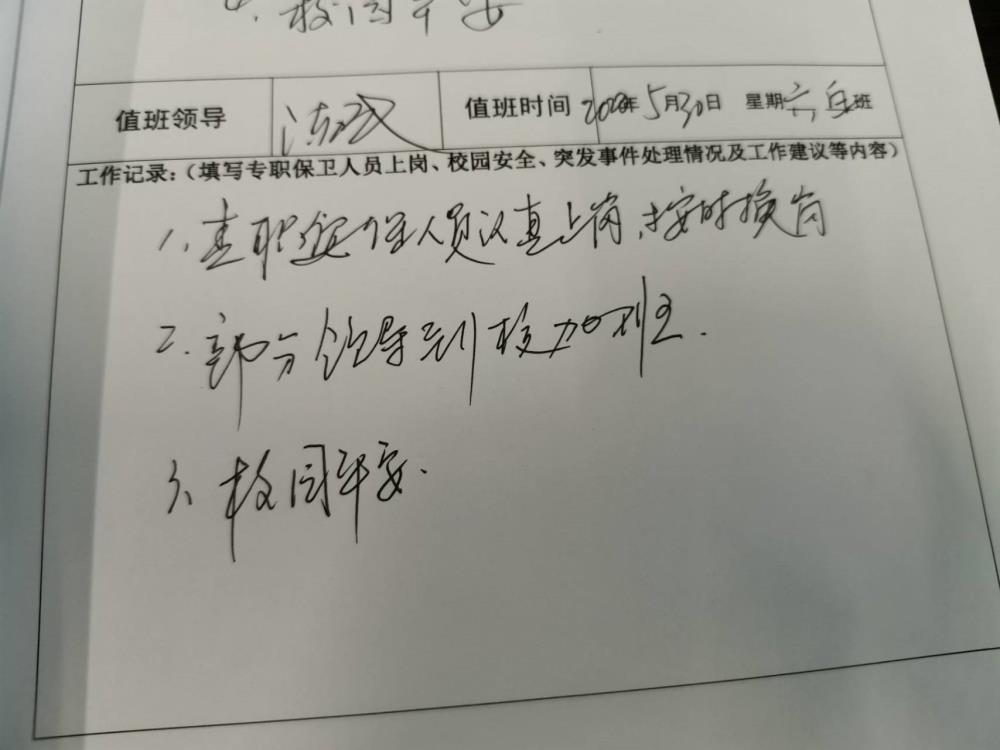 4. 校园平安
值班领导 值班时间 2020年5月30日 星期六 班
工作记录：（填写专职保卫人员上岗、校园安全、突发事件处理情况及工作建议等内容）
1. 专职 保人员认真上岗、按时换岗
2. 部分领导到校加班.
3、校园平安.